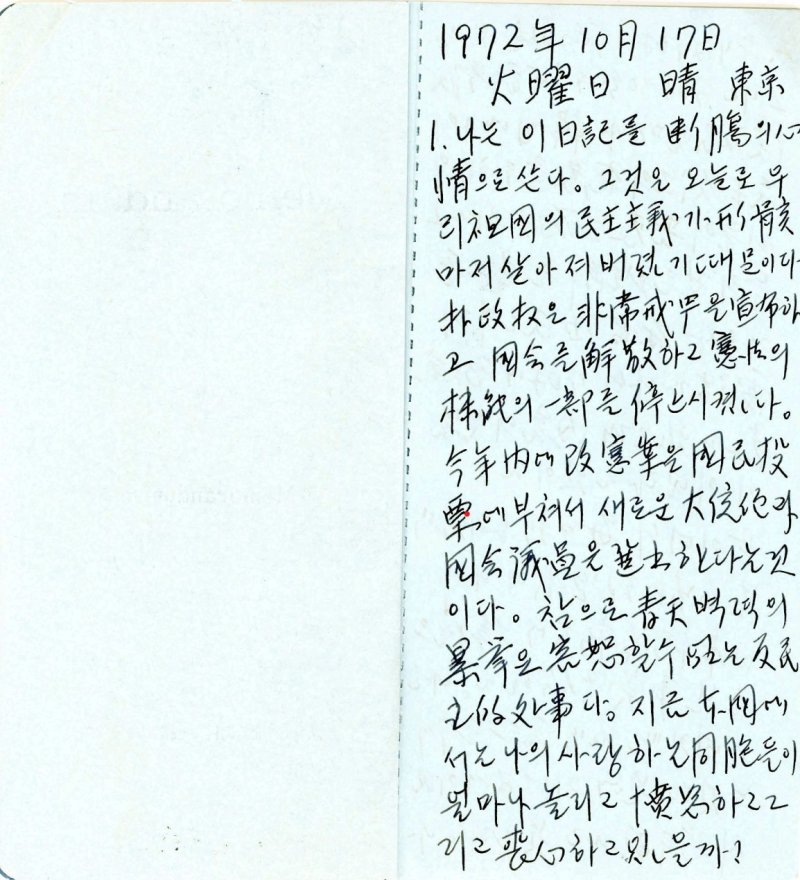 1972年 10月 17日
火曜日 晴 東京
1. 나는 이 日記를 断腸의 心
情으로 쓴다。그것은 오늘로 우
리 祖国의 民主主義가 形骸
마저 살아져 버렸기 때문이다
朴政权은 非常戒严을 宣布하
고 国会를 解散하고 憲法의
机能의 一部를 停止시켰다。
今年 内에 改憲案을 国民投
票에 부쳐서 새로운 大統領과
国会議員을 選出한다는 것
이다。참으로 青天벽력의
暴挙요 容恕할 수 없는 反民
主的 处事다。지금 本国에
서는 나의 사랑하는 同胞들이
얼마나 놀라고 憤怒하고 그
리고 喪心하고 있을까!